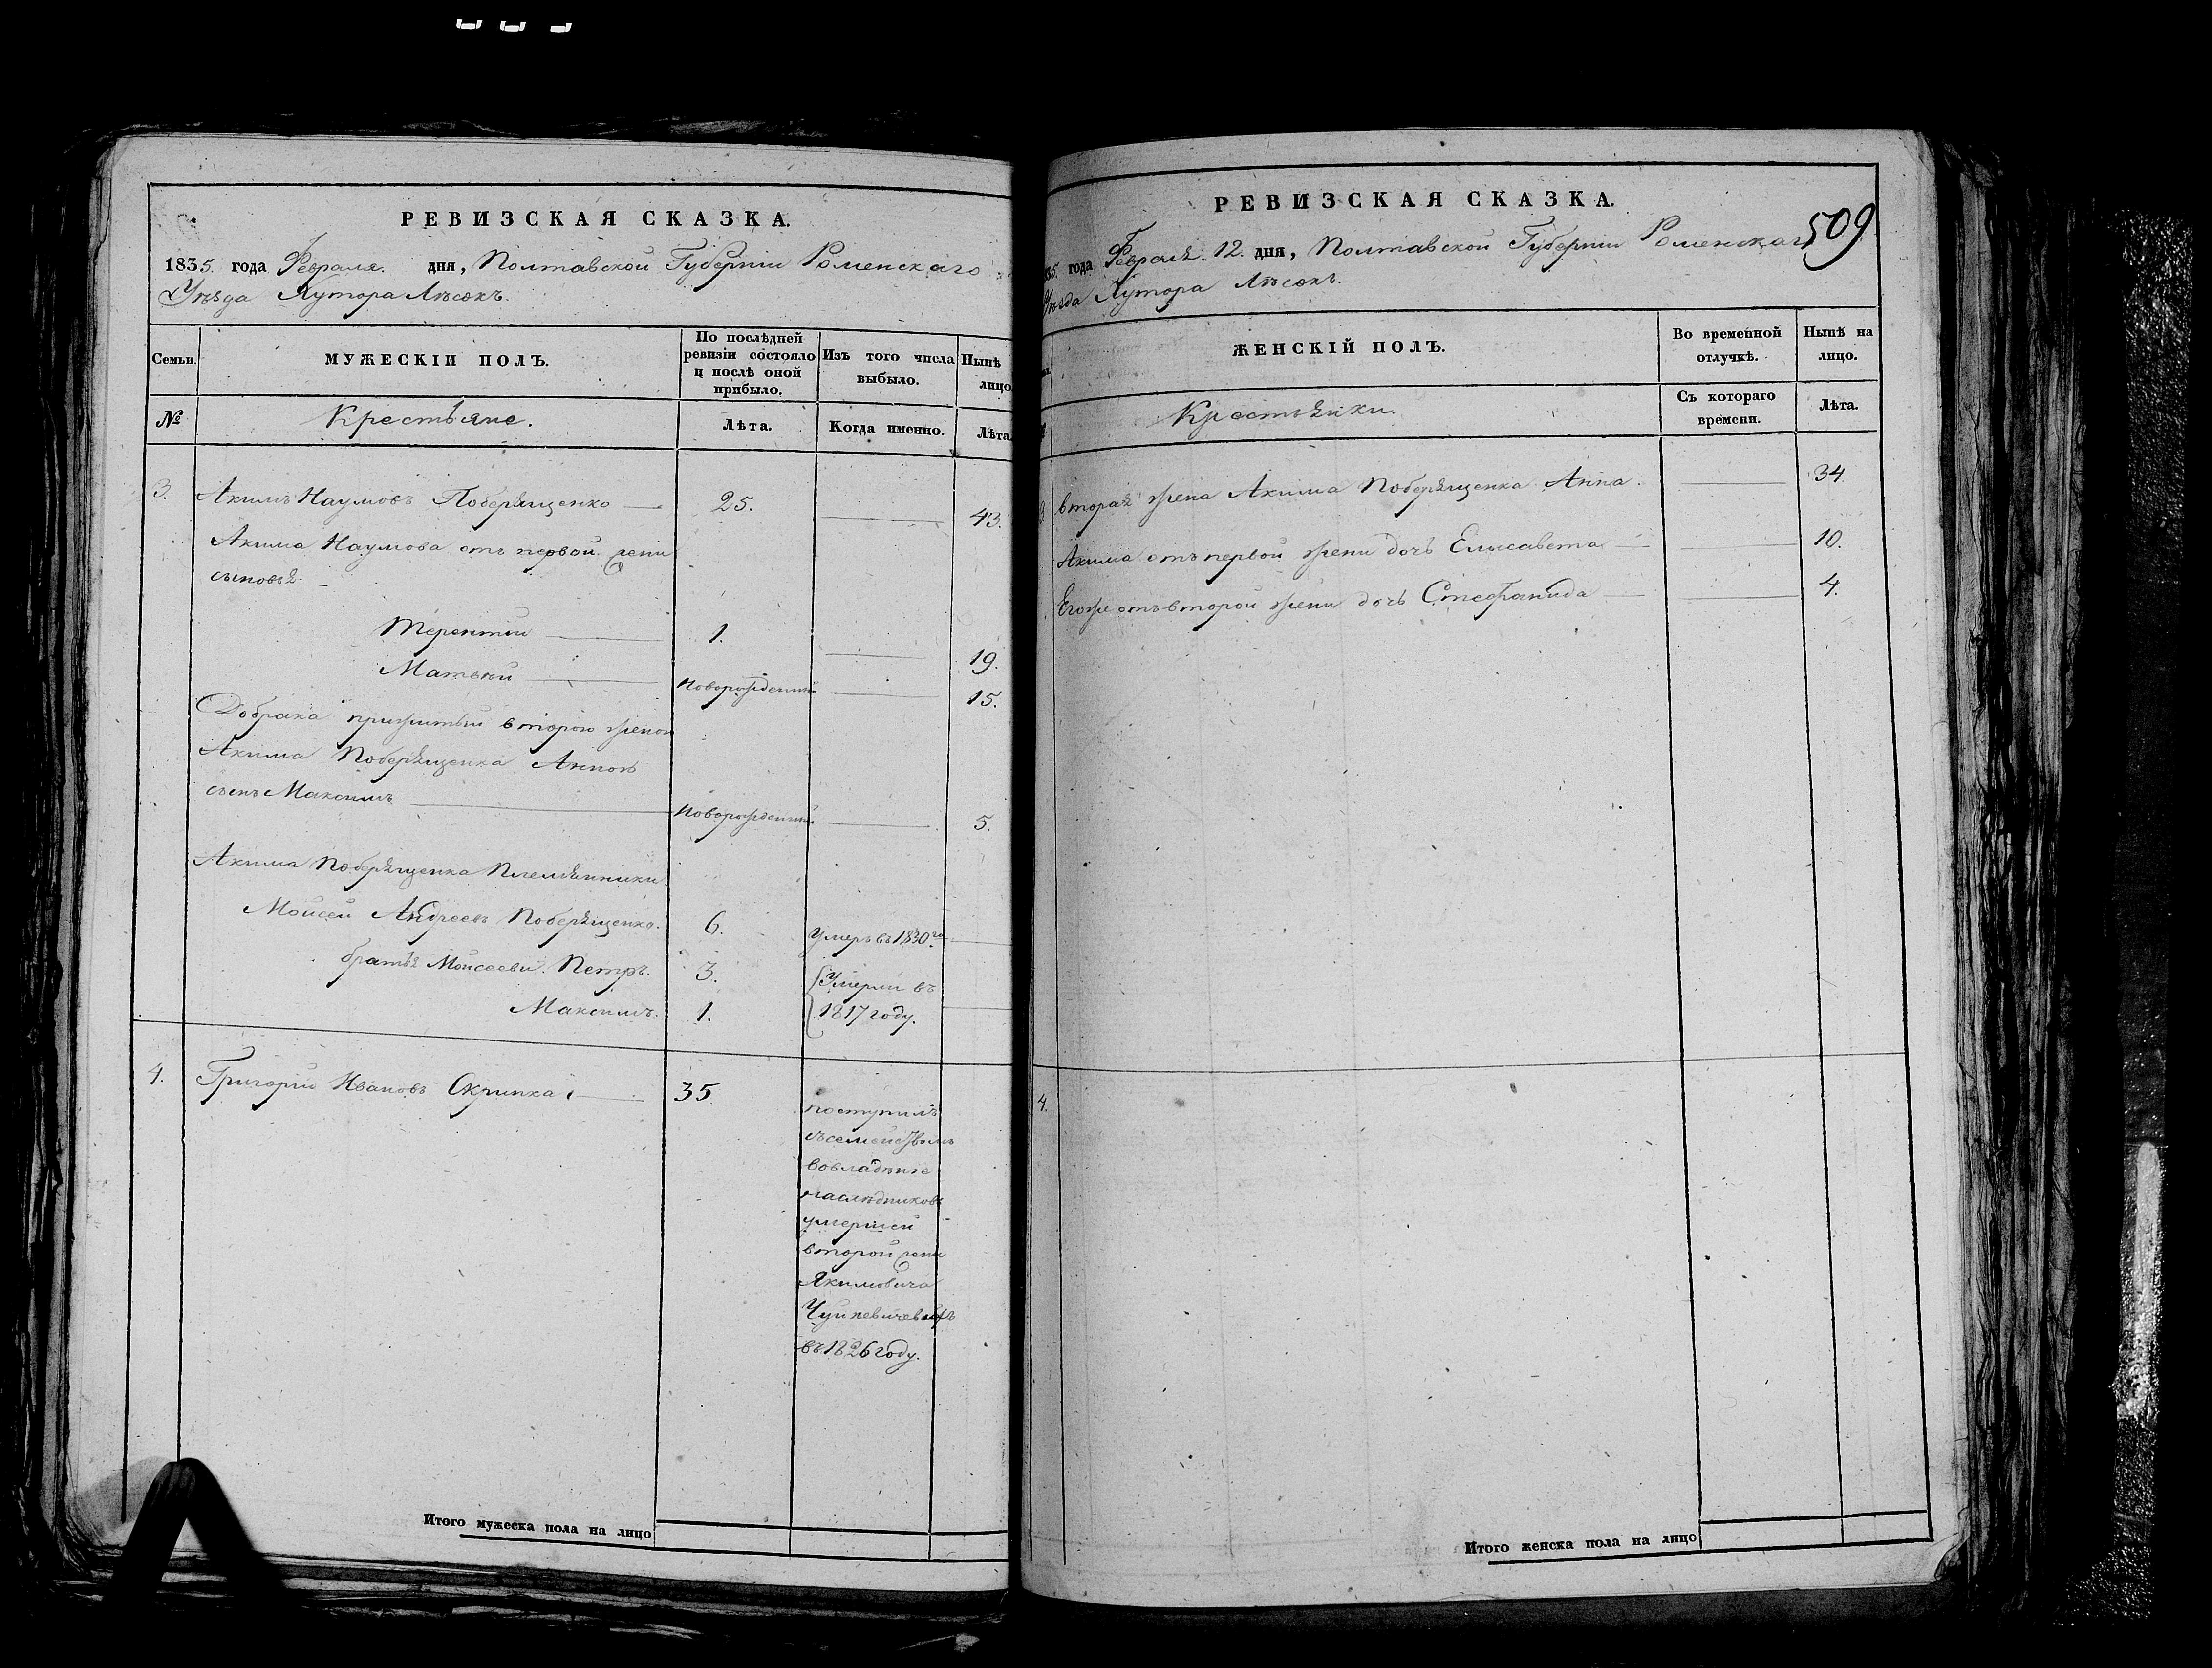 РЕВИЗСКАЯ СКАЗКА.
1835. года Февраля. дня, Полтавской Губерніи Роменскаго
Уѣзда Хутора Лѣсокъ.
Семьи.
МУЖЕСКІИ ПОЛЪ.
По послѣдней ревизіи состояло и послѣ оной прибыло.
Изъ того числа выбыло.
Нынѣ лицо
№
Крестьяне.
Лѣта.
Когда именно.
Лѣта
3. Акимъ Наумовъ Поберященко 25. 43.
Акима Наумова отъ первой жены
сыновья
Терентій 1. 19.
Матвѣй Новорожденный 15.
Добрака прижитый второю женою
Акима Поберященка Анною
сынъ Максимъ Новорожденный 5.
Акима Поберященка Племянники
Моисей Андреевъ Поберященко. 6. Умеръ въ 1830го
братья Моисееви. Петръ. 3. Умерли въ
Максимъ. 1. 1817 году.
4. Григорій Ивановъ Скрипка 35.
поступилъ
съсемействомъ
вовладѣніе
наслѣдниковъ
умершей
второй жены
Якимовича
въ 1826 году.
Итого мужеска пола на лицо
РЕВИЗСКАЯ СКАЗКА.
509
35. года Февраля 12. дня, Полтавской Губерніи Роменскаго
Уѣзда Хутора Лѣсокъ.
ЖЕНСКІЙ ПОЛЪ.
Во временной отлучкѣ.
Нынѣ на лицо.
Крестьянки.
Съ котораго времени.
Лѣта.
3. вторая жена Акима Поберященка Анна. 34.
Акима отъ первой жени дочь Елисавета 10.
Егоже отъ второй жени дочь Стефанида 4.
4.
Итого женска пола на лицо